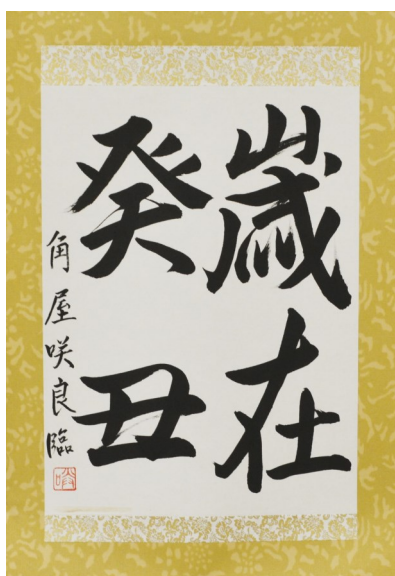 歳在
癸丑
角屋咲良臨